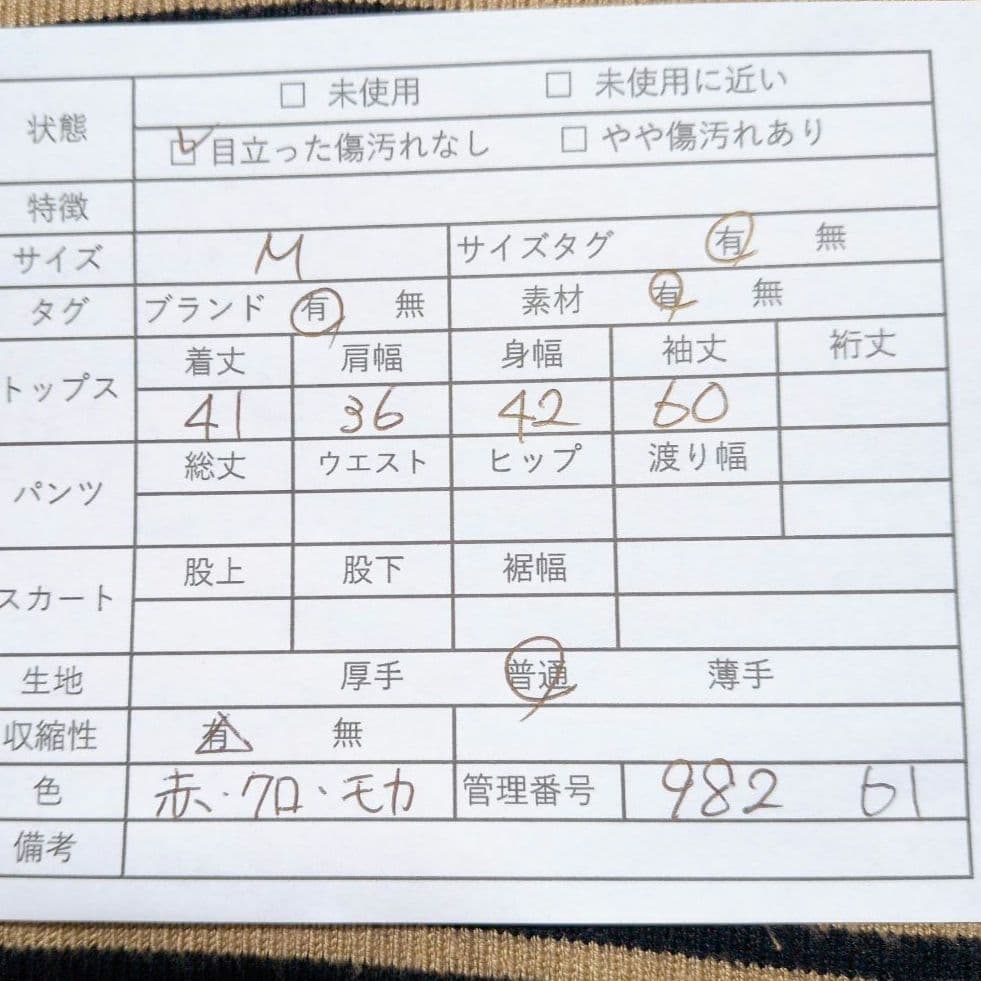 状態 □ 未使用 □ 未使用に近い
☑ 目立った傷汚れなし □ やや傷汚れあり
特徴
サイズ M サイズタグ 有 無
タグ ブランド 有 無 素材 有 無
トップス 着丈 肩幅 身幅 袖丈 裄丈
41 36 42 60
パンツ 総丈 ウエスト ヒップ 渡り幅
スカート 股上 股下 裾幅
生地 厚手 普通 薄手
収縮性 有 無
色 赤、・クロ、モカ 管理番号 982 61
備考